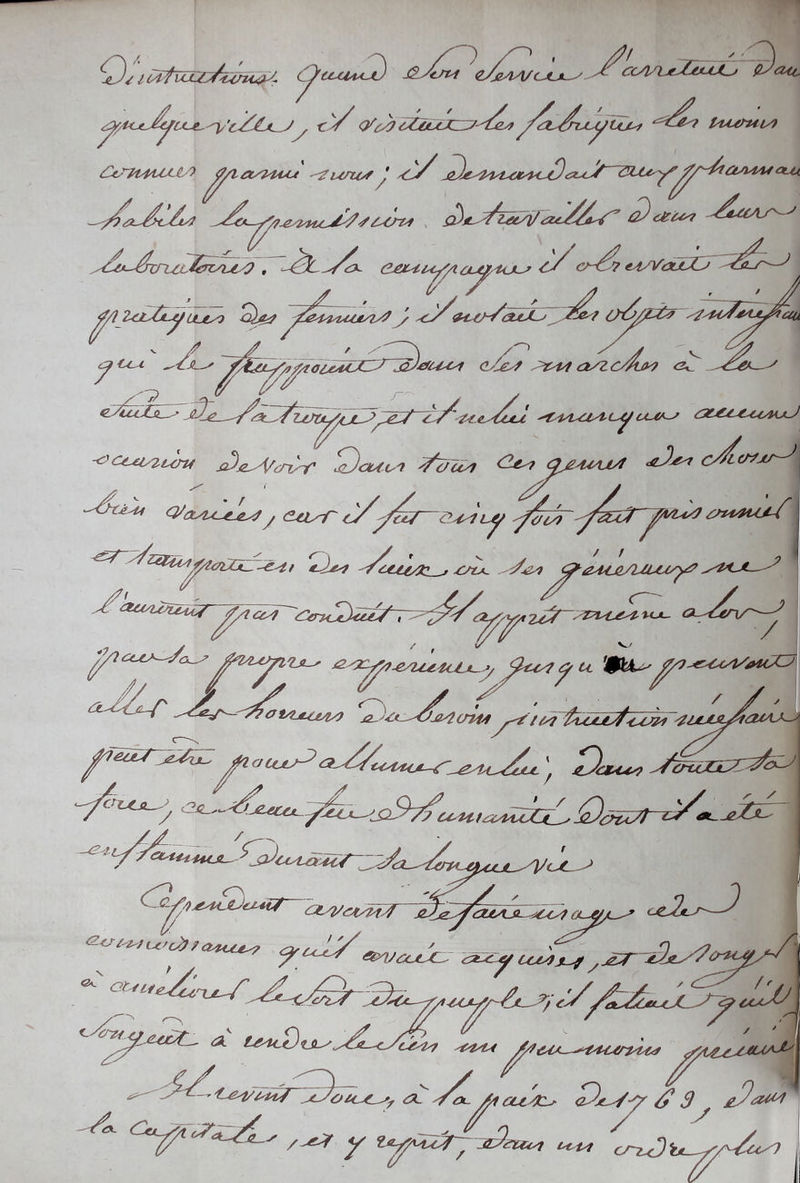 D'instructions. Quand Son Service l'arretait dans
quelque ville, il visitait les fabriques les moins
connues parmi nous; il demandait aux pharmac
habiles la permission de travailler dans leurs
laboratoires. à la campagne il observait les
pratiques des fermiers; il notait les objets intéressans
qui le frappoient dans Ses marches à la
Suite de la troupe, et il ne lui manqua aucune
occasion de voir dans tous ces genres des choses
bien variées, car il fut cinq fois fait prisonnier
et transporté en des lieux où ses généraux ne
l'auroient pas conduit. Il apprit même alors,
par sa propre expérience, jusqu'où peuvent
aller les horreurs du besoin, instruction nécessaire
peut être pour allumer en lui, dans toute sa
force, ce beau feu d'humanité dont il a été
enflammé durant sa longue vie
Cependant avant de faire usage des
connoissances qu'il avait acquises, et de songer
à améliorer le Sort du peuple, il fallait qu'il
Songeat à rendre le Sien un peu moins précaire
Il revint donc, à la paix de 1763, dans
la Capitale, et y reprit, dans un ordre plus